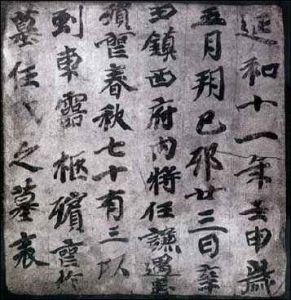 延和十一年壬申歲
五月朔己卯廿三日辛
丑鎮西府內將任謙遇患
殞靈春秋七十有三以
車靈柩殯於
墓任氏之墓表